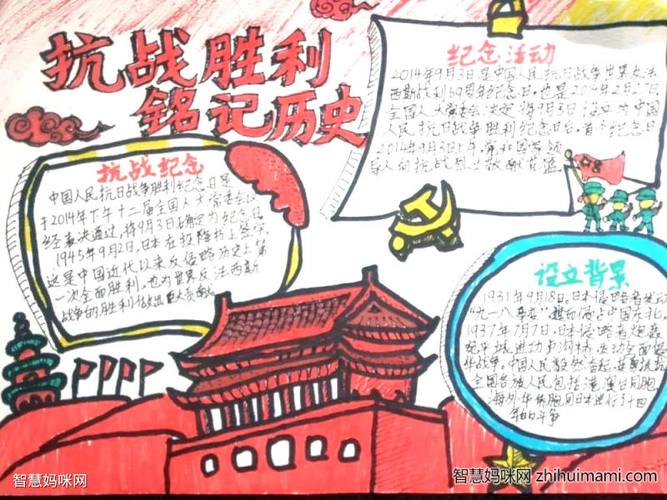 抗战胜利
铭记历史
纪念活动
2014年9月3日是中国人民抗日战争世界反法
西斯战利69周年纪念日,也是2014年2月27日
全国人大常委会决定将9月3日设立为中国
人民抗日战争胜利纪念日后,首个纪念日
2014年9月3日上午,
抗战纪念
中国人民抗日战争胜利纪念日是
于2014年下午十二届全国人大常委会以
经表决通过,将9月3日确定为纪念日
1945年9月2日,日本在投降书上签字
这是中国近代以来反侵略历史上第
一次全面胜利,也为世界反法西斯
战争的胜利做出巨大贡献
设立背景
1931年9月18日,日本侵略者发动
"九一八事变",中国东北。
1937年7月7日,日本侵略者炮轰
宛平城进攻卢沟桥,发动全面侵
华战争。中国人民毅然奋起,
全国各族人民包括港澳台同胞
海外华侨同胞同日本进行了十四
年的斗争
智慧妈咪网
智慧妈咪网 zhihuimami.com